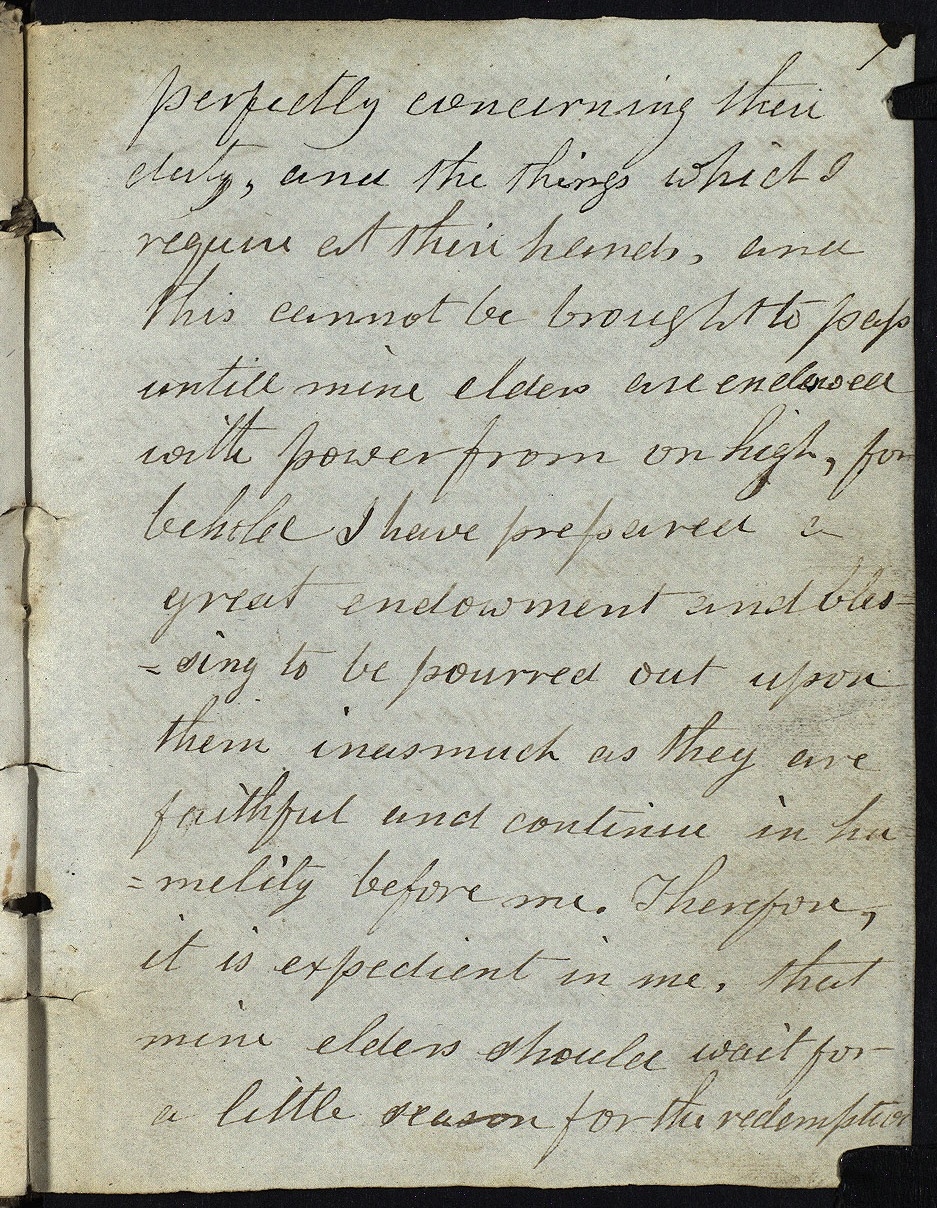 perfectly concerning their
duty, and the things which I
require at their hands, and
this cannot be brought to pass
untill mine elders are endowed
with power from on high, for
behold I have prepared a
great endowment and bles=
=sing to be pourred out upon
them inasmuch as they are
faithful and continue in hu=
=melity before me. Therefore,
it is expedient in me, that
mine elders should wait for
a little season for the redemption